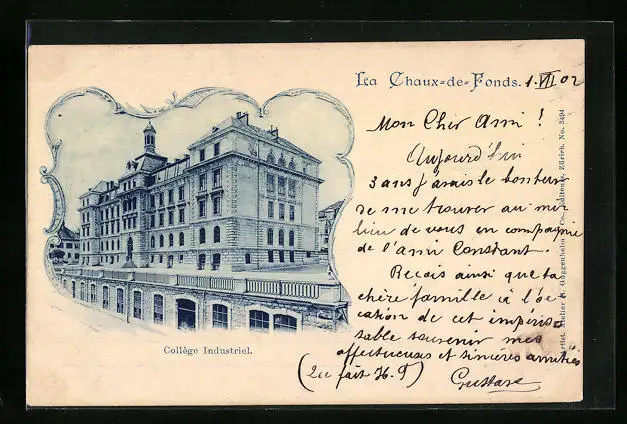 La Chaux-de-Fonds. 1. VII 02
Mon Cher Ami !
Aujourd'hui
3 ans j'avais le bonheur
de me trouver au mi-
lieu de vous en compagnie
de l'ami Constant.
Reçois ainsi que ta
chère famille à l'oc-
cation de cet impéris-
sable souvenir mes
affectueuses et sincères amitiés
Gustave
Collège Industriel.
Artist. Atelier H. Guggenheim & Co., Editeurs, Zürich. No. 3494